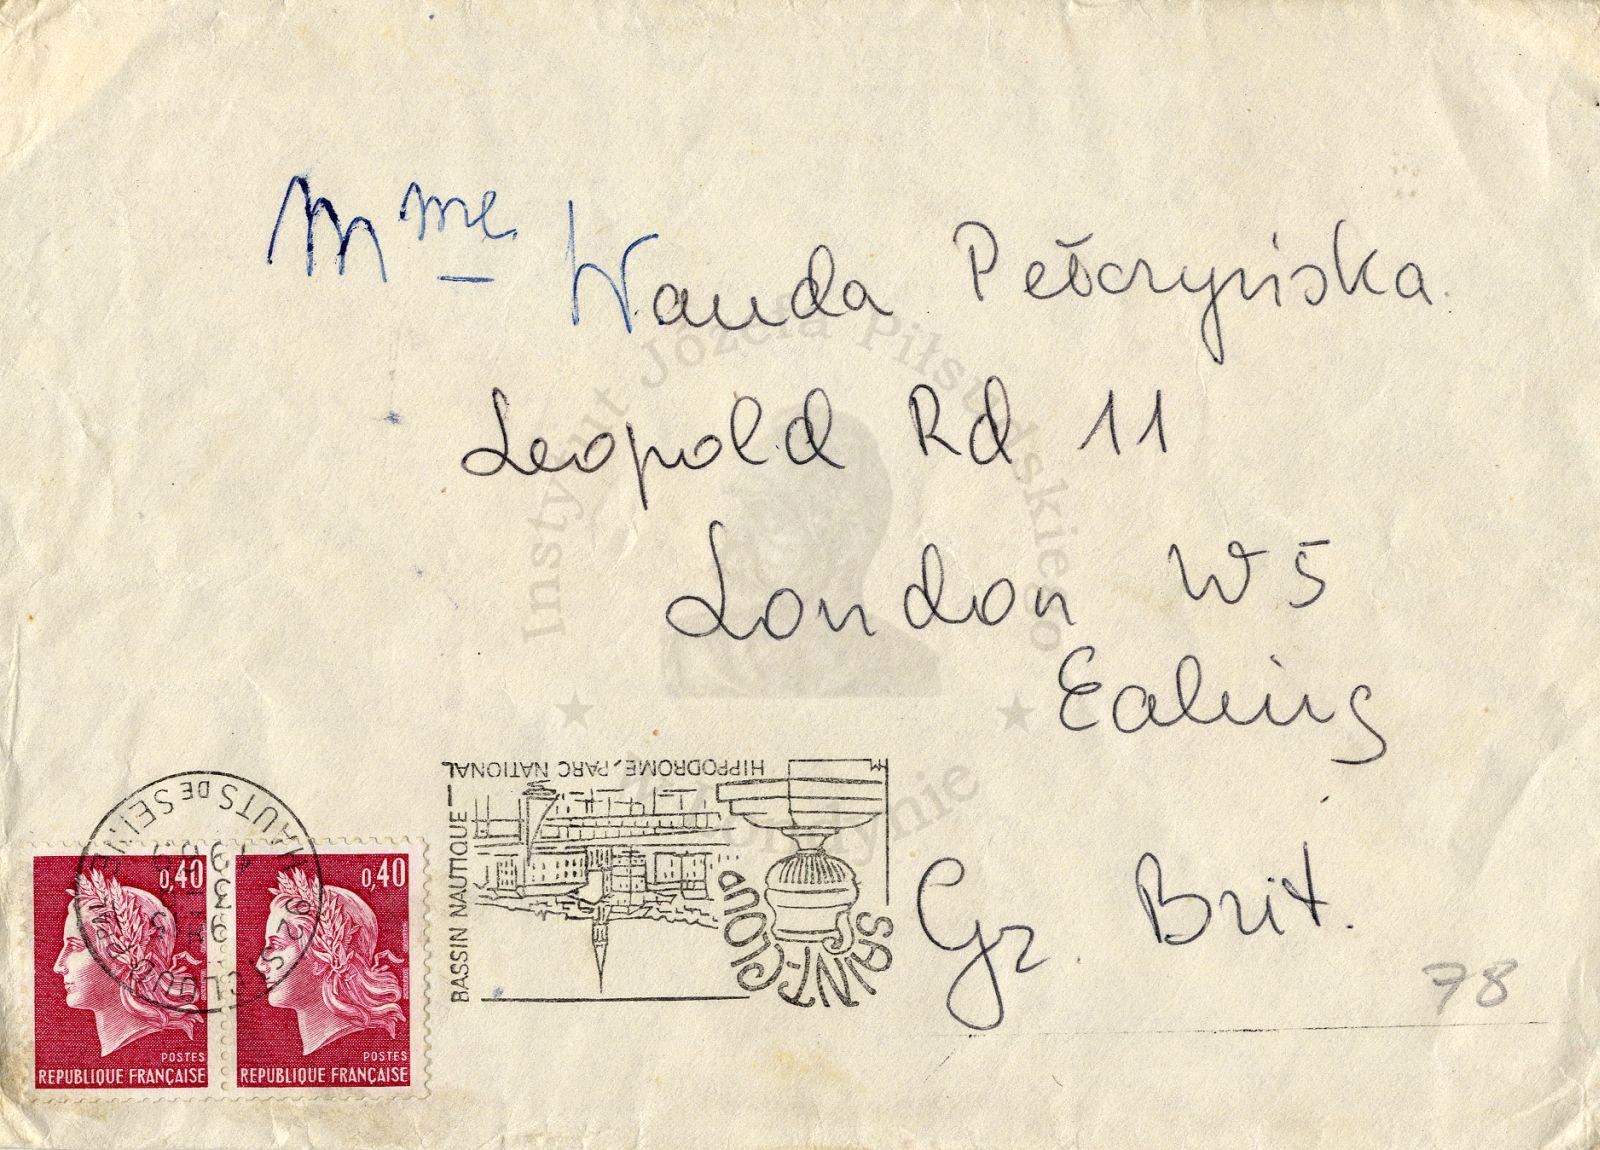 Mme Wanda Pełczyńska.
Leopold Rd 11
London W5
Ealing
Gr. Brit.
78
Instytut Józefa Piłsudskiego
HIPPODROME, PARC NATIONAL
BASSIN NAUTIQUE
SAINT-CLOUD
92 ST CLOUD PPAL
HAUTS DE SEINE
0,40
POSTES
REPUBLIQUE FRANÇAISE
0,40
POSTES
REPUBLIQUE FRANÇAISE